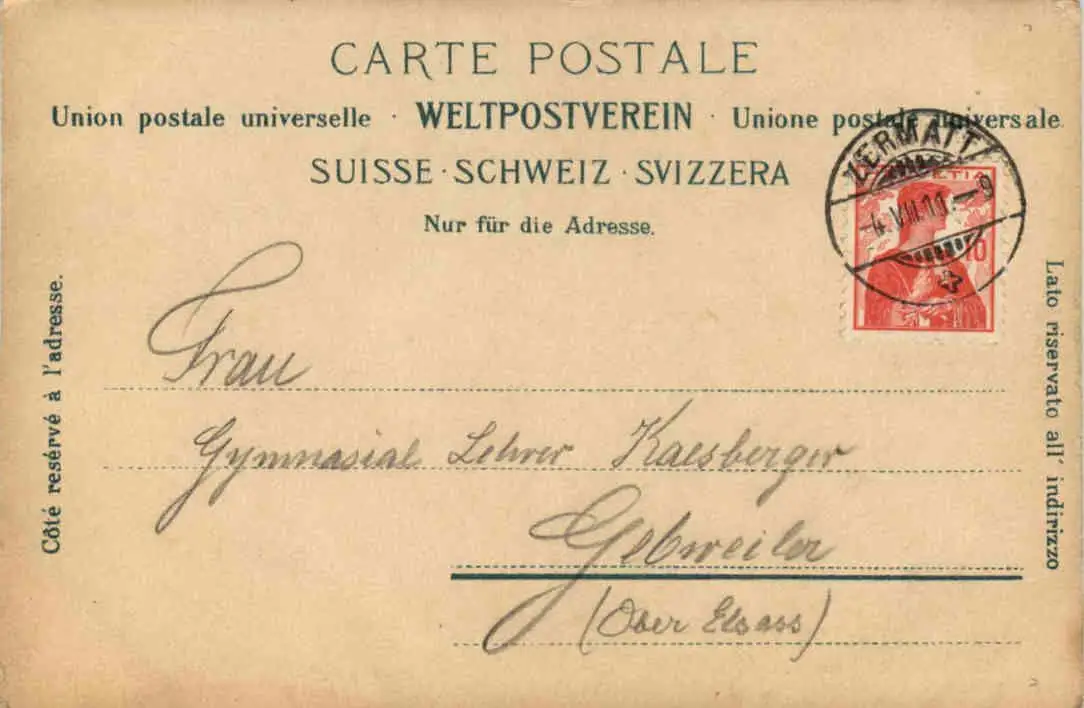 CARTE POSTALE
Union postale universelle · WELTPOSTVEREIN · Unione postale universale
SUISSE · SCHWEIZ · SVIZZERA
Nur für die Adresse.
ZERMATT
HELVETIA
4. VIII. 11. - 9
10
Côté resérvé à l'adresse.
Lato riservato all' indirizzo
Frau
Gymnasial Lehrer Kaesberger
Gebweiler
(Ober Elsass)